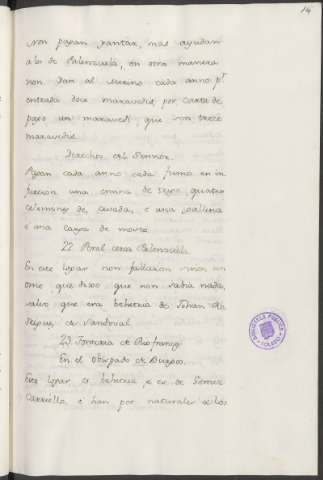 14
Non pagan yantar, mas ayudan
a los de Palenzuela, en otra manera
non. Dan al merino cada anno pr
entrada doce maravedis, por carta de
pago un maravedi, que son trece
maravedis.
Derechos del Sennor.
Pagan cada anno cada fumo en in
furcion una emina de trigo, quatro
celemines de cevada, e una gallina
e una carga de mosto.
22 Peral cerca Palenzuela
En este logar non fallaron sinon un
ome que dixo que non sabia nada,
salvo que era behetria de
de Sandoval
23. Torrecita de Rio franco
En el Obispado de Burgos.
Este logar es behetria, e es de Gomez
Carriello, e han por naturales a los